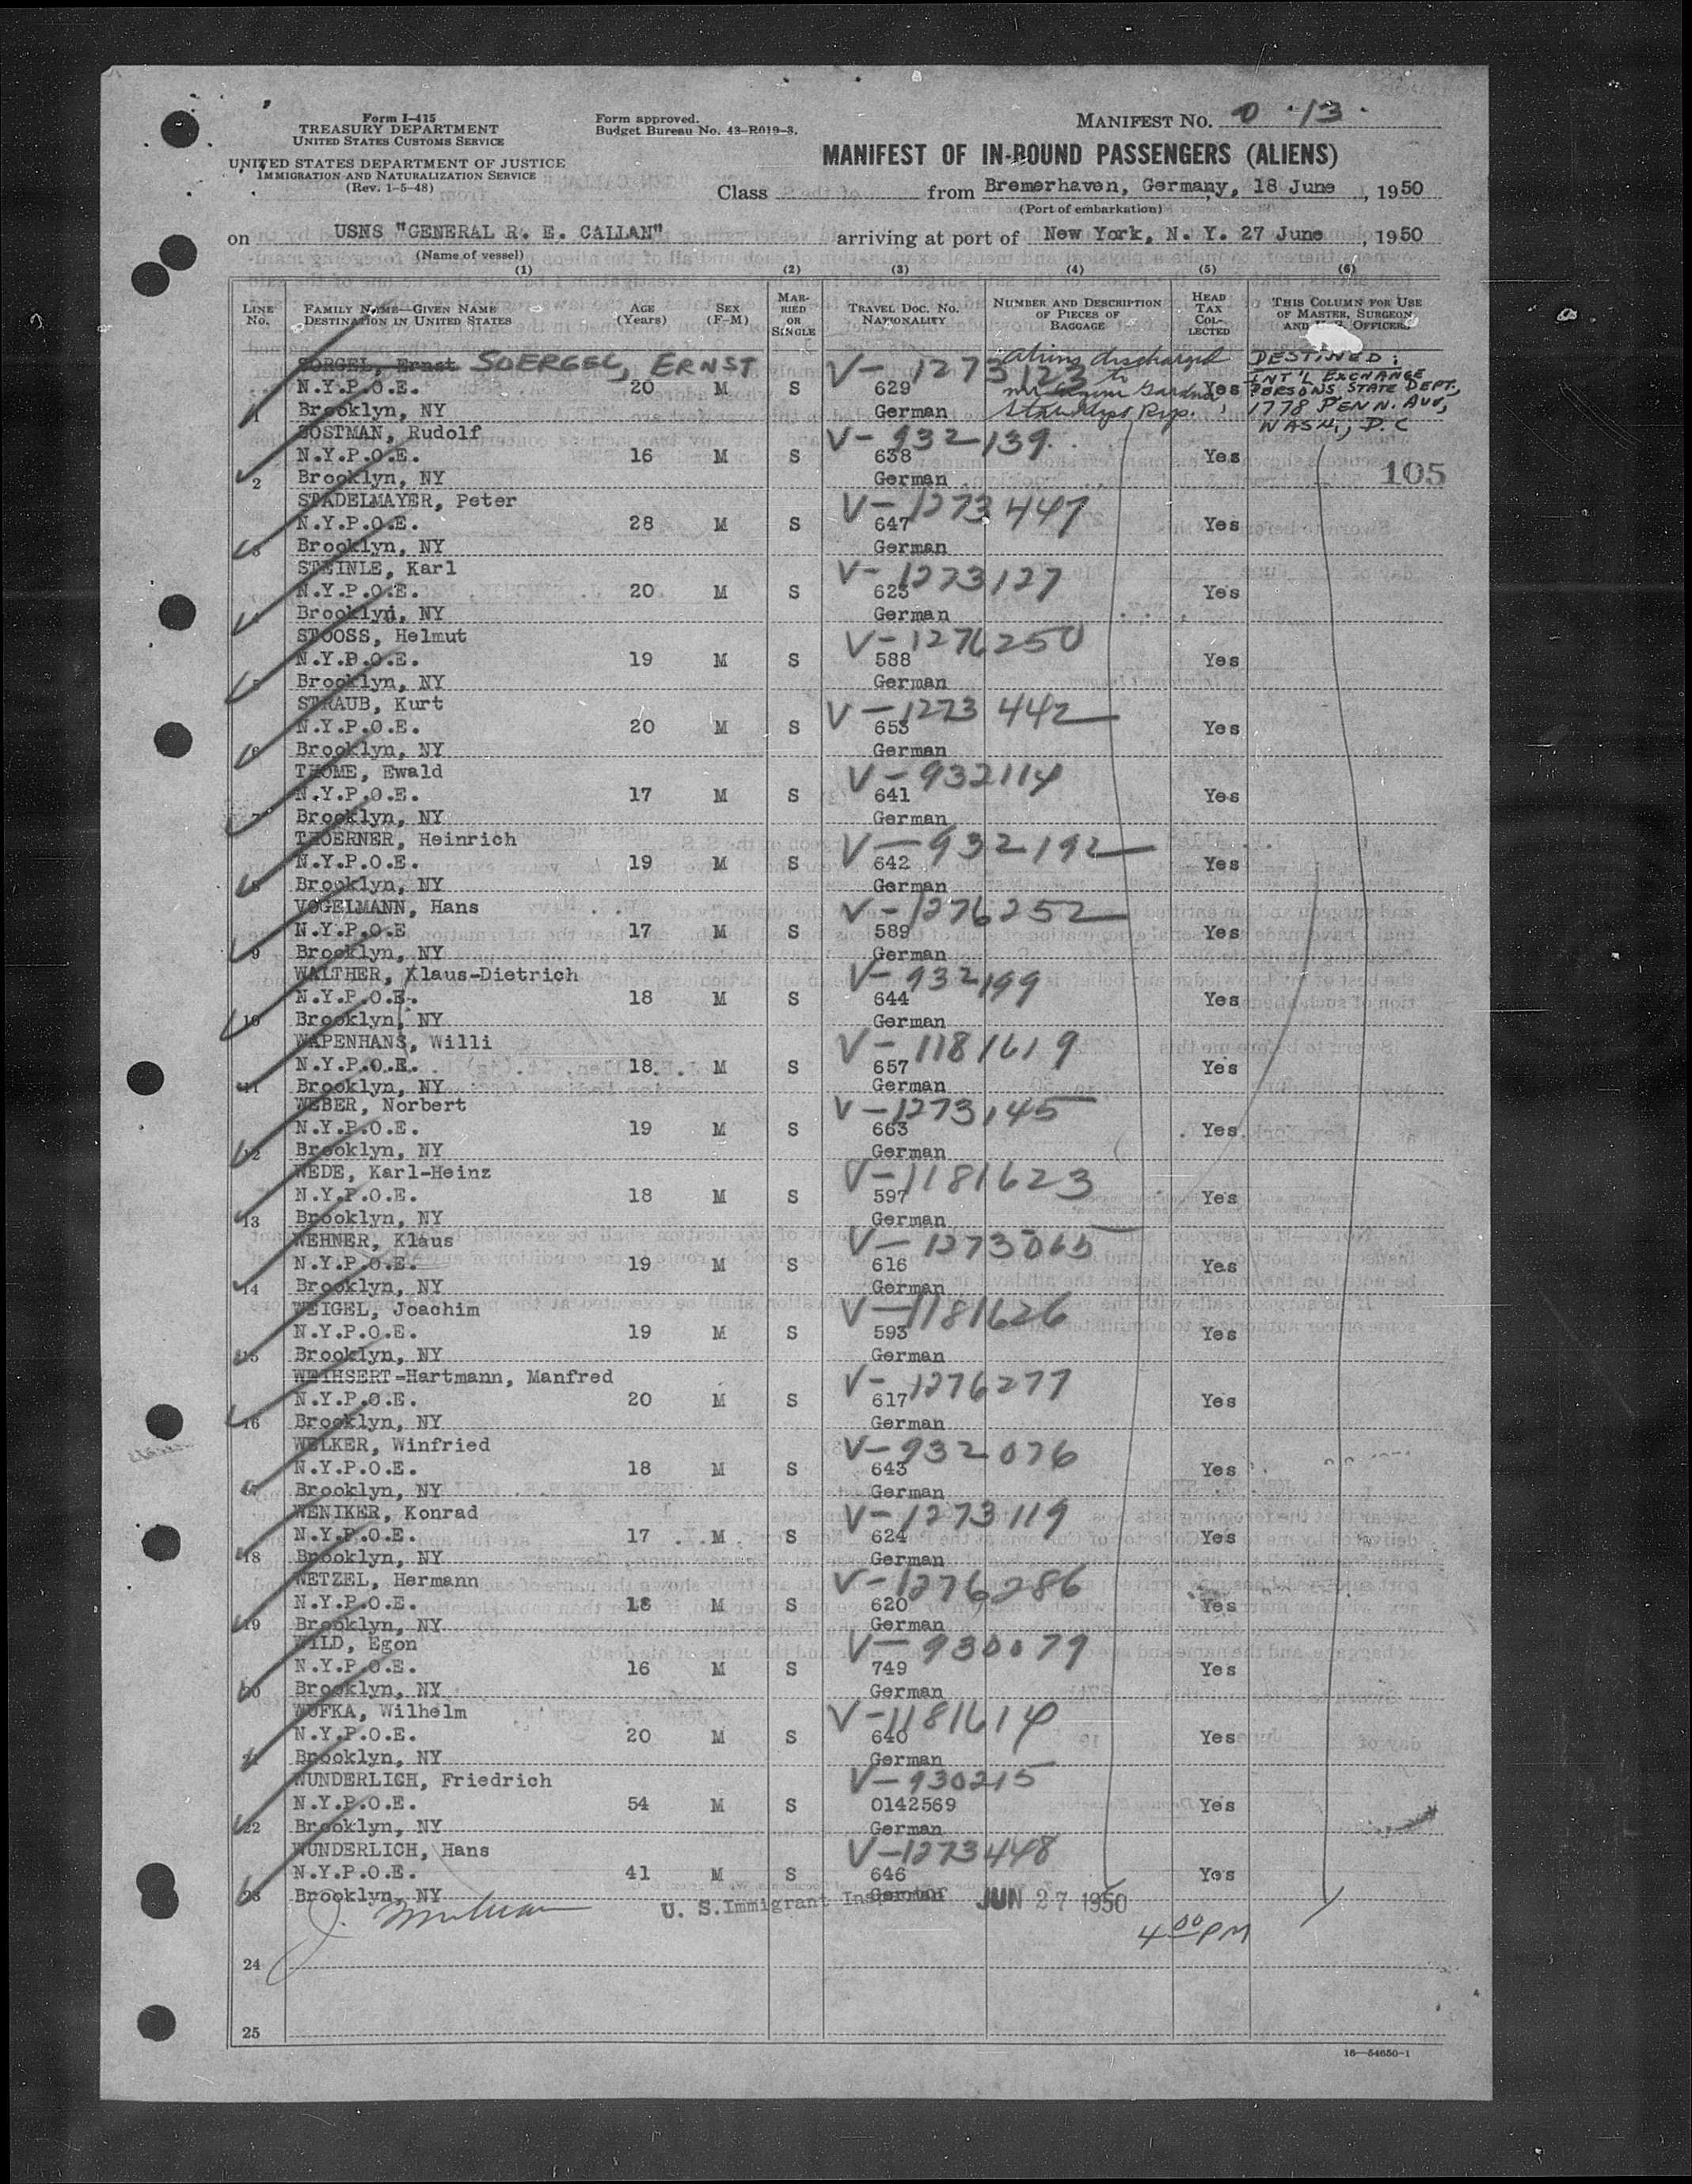 Form I-415
TREASURY DEPARTMENT
UNITED STATES CUSTOMS SERVICE
UNITED STATES DEPARTMENT OF JUSTICE
IMMIGRATION AND NATURALIZATION SERVICE
(Rev. 1-5-48)
Form approved.
Budget Bureau No. 43-R019-3.
MANIFEST NO. 0-13
MANIFEST OF IN-BOUND PASSENGERS (ALIENS)
Class from Bremerhaven, Germany, 18 June, 1950
(Port of embarkation)
on USNS "GENERAL R. E. CALLAN" arriving at port of New York, N. Y. 27 June, 1950
(Name of vessel)
(1) (2) (3) (4) (5) (6)
LINE NO. FAMILY NAME—GIVEN NAME DESTINATION IN UNITED STATES AGE (Years) SEX (F-M) MARRIED OR SINGLE TRAVEL DOC. NO. NATIONALITY NUMBER AND DESCRIPTION OF PIECES OF BAGGAGE HEAD TAX COLLECTED THIS COLUMN FOR USE OF MASTER, SURGEON AND U. S. OFFICERS
SORGEL, Ernst SOERGEL, ERNST V-1273123 Aliens discharged to DESTINED:
N.Y.P.O.E. 20 M S 629 Yes INT'L EXCHANGE PERSONS, STATE DEPT.,
1 Brooklyn, NY German State Dept Rep. 1778 PENN. AVE, WASH., D.C
SOSTMAN, Rudolf V-932139
N.Y.P.O.E. 16 M S 638 Yes 105
2 Brooklyn, NY German
STADELMAYER, Peter V-1273447
N.Y.P.O.E. 28 M S 647 Yes
3 Brooklyn, NY German
STEINLE, Karl V-1273127
N.Y.P.O.E. 20 M S 623 Yes
4 Brooklyn, NY German
STOOSS, Helmut V-1276250
N.Y.P.O.E. 19 M S 588 Yes
5 Brooklyn, NY German
STRAUB, Kurt V-1273442
N.Y.P.O.E. 20 M S 653 Yes
6 Brooklyn, NY German
THOME, Ewald V-932114
N.Y.P.O.E. 17 M S 641 Yes
7 Brooklyn, NY German
THOERNER, Heinrich V-932192
N.Y.P.O.E. 19 M S 642 Yes
8 Brooklyn, NY German
VOGELMANN, Hans V-1276252
N.Y.P.O.E 17 M S 589 Yes
9 Brooklyn, NY German
WALTHER, Klaus-Dietrich V-932199
N.Y.P.O.E. 18 M S 644 Yes
10 Brooklyn, NY German
WAPENHANS, Willi V-1181619
N.Y.P.O.E. 18 M S 657 Yes
11 Brooklyn, NY German
WEBER, Norbert V-1273145
N.Y.P.O.E. 19 M S 663 Yes
12 Brooklyn, NY German
WEDE, Karl-Heinz V-1181623
N.Y.P.O.E. 18 M S 597 Yes
13 Brooklyn, NY German
WEHNER, Klaus V-1273065
N.Y.P.O.E. 19 M S 616 Yes
14 Brooklyn, NY German
WEIGEL, Joachim V-1181626
N.Y.P.O.E. 19 M S 593 Yes
15 Brooklyn, NY German
WEIHSERT-Hartmann, Manfred V-1276277
N.Y.P.O.E. 20 M S 617 Yes
16 Brooklyn, NY German
WELKER, Winfried V-932076
N.Y.P.O.E. 18 M S 643 Yes
17 Brooklyn, NY German
WENIKER, Konrad V-1273119
N.Y.P.O.E. 17 M S 624 Yes
18 Brooklyn, NY German
WETZEL, Hermann V-1276286
N.Y.P.O.E. 18 M S 620 Yes
19 Brooklyn, NY German
WILD, Egon V-930079
N.Y.P.O.E. 16 M S 749 Yes
20 Brooklyn, NY German
WUFKA, Wilhelm V-1181614
N.Y.P.O.E. 20 M S 640 Yes
21 Brooklyn, NY German
WUNDERLICH, Friedrich V-930215
N.Y.P.O.E. 54 M S 0142569 Yes
22 Brooklyn, NY German
WUNDERLICH, Hans V-1273448
N.Y.P.O.E. 41 M S 646 Yes
23 Brooklyn, NY German
U. S. Immigrant Inspector JUN 27 1950
4 00 PM
24
25
16—54650-1